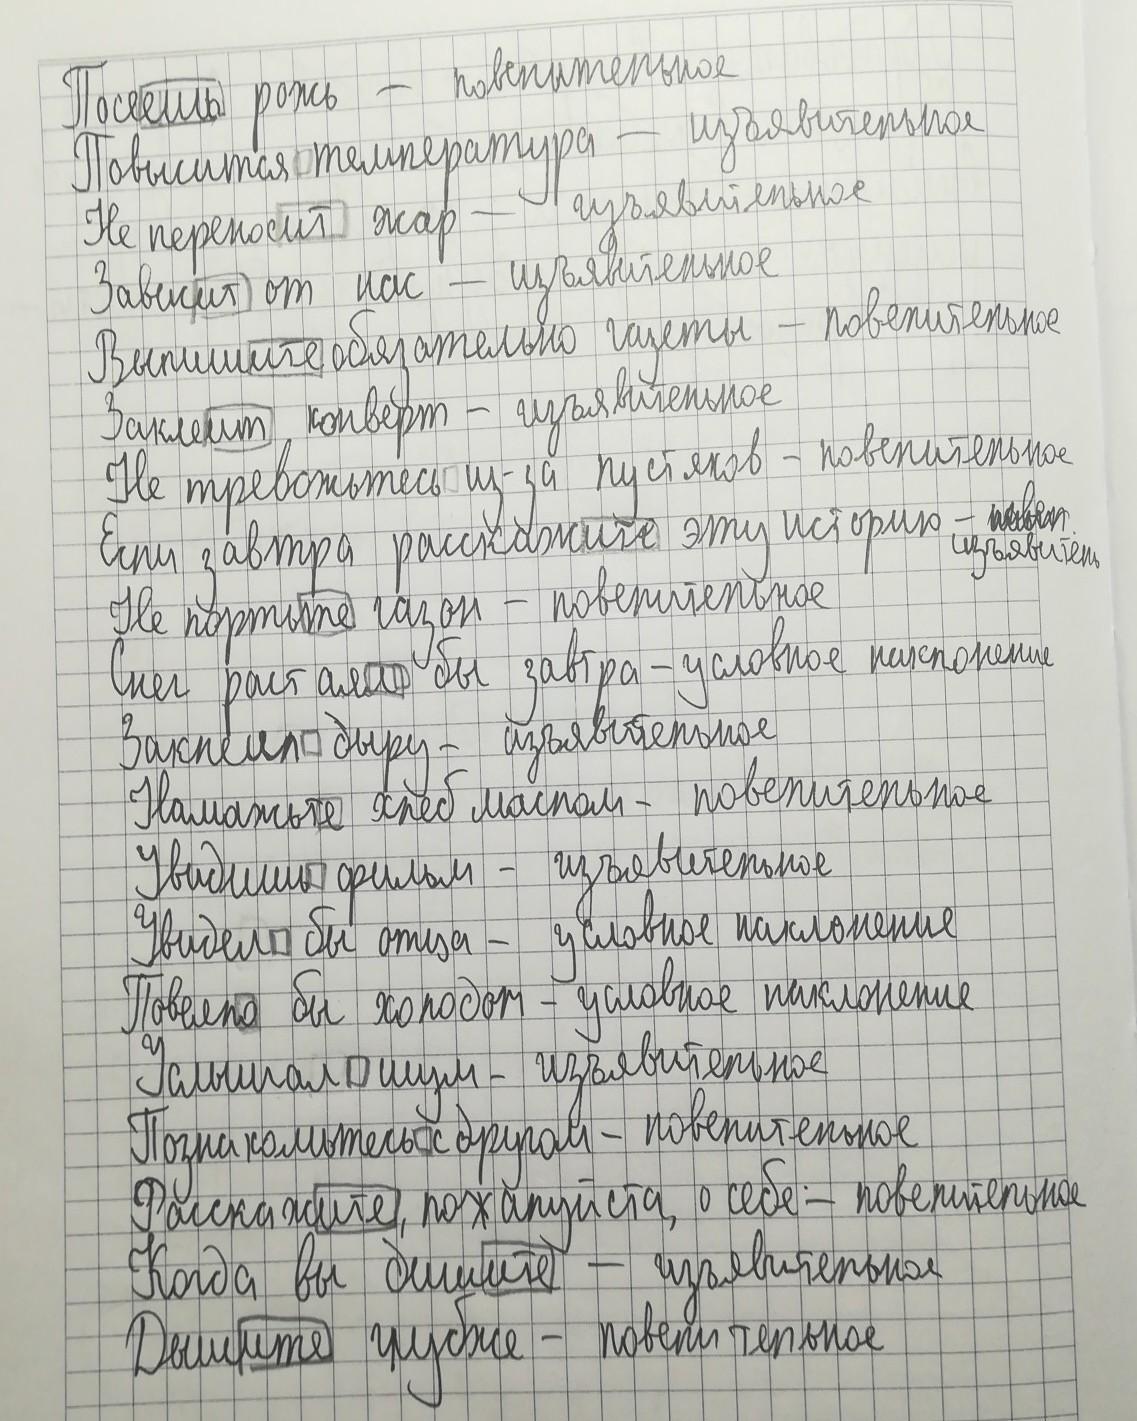 Посеешь рожь — повелительное
Повысится температура — изъявительное
Не переносит жар — изъявительное
Зависит от нас — изъявительное
Выпишите обязательно газеты — повелительное
Заклеит конверт — изъявительное
Не тревожьтесь из-за пустяков — повелительное
Если завтра расскажите эту историю —
изъявитель
Не портьте газон — повелительное
Снег растаял бы завтра — условное наклонение
Заклеил дыру — изъявительное
Намажьте хлеб маслом — повелительное
Увидишь фильм — изъявительное
Увидел бы отца — условное наклонение
Повеяло бы холодом — условное наклонение
Услышал шум — изъявительное
Познакомьтесь с другом — повелительное
Расскажите, пожалуйста, о себе — повелительное
Когда вы дышите — изъявительное
Дышите глубже — повелительное